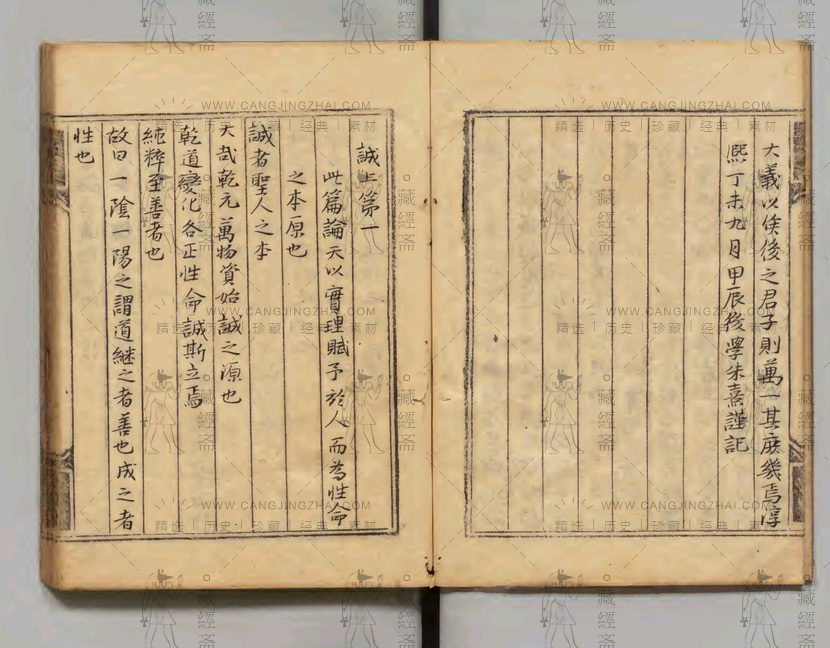 大義以俟後之君子則萬一其庶幾焉淳
熙丁未九月甲辰後學朱熹謹記
誠上第一
此篇論天以實理賦予於人而為性命
之本原也
誠者聖人之本
大哉乾元萬物資始誠之源也
乾道變化各正性命誠斯立焉
純粹至善者也
故曰一陰一陽之謂道継之者善也成之者
性也
WWW.CANGJINGZHAI.COM
精选 | 历史 | 珍藏 | 经典 | 素材
藏經斋